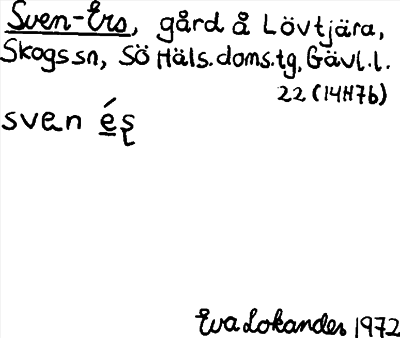 Sven-Ers, gård å Lövtjära,
Skogs sn, Sö Häls. doms.tg, Gävl. l.
22 (14H7b)
sven é̲ș
Eva Lokander 1972